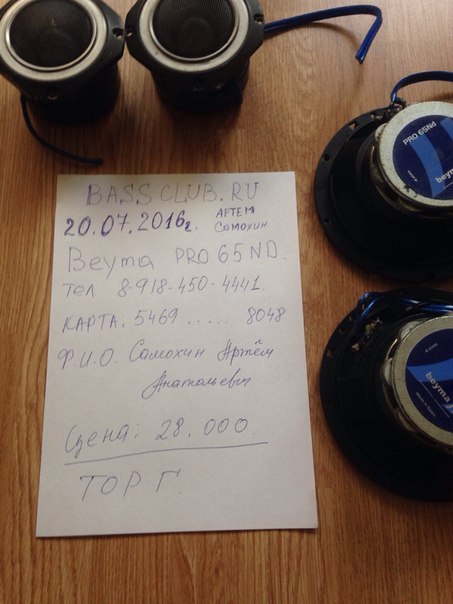 BASSCLUB.RU
20.07.2016г. АРТЕМ
Самохин
Beyma PRO 65 ND.
Тел 8-918-450-4441
КАРТА. 5469........8048
Ф.И.О. Самохин Артём
Анатольевич
Цена: 28.000
ТОРГ
PRO 65Nd
beyma
beyma